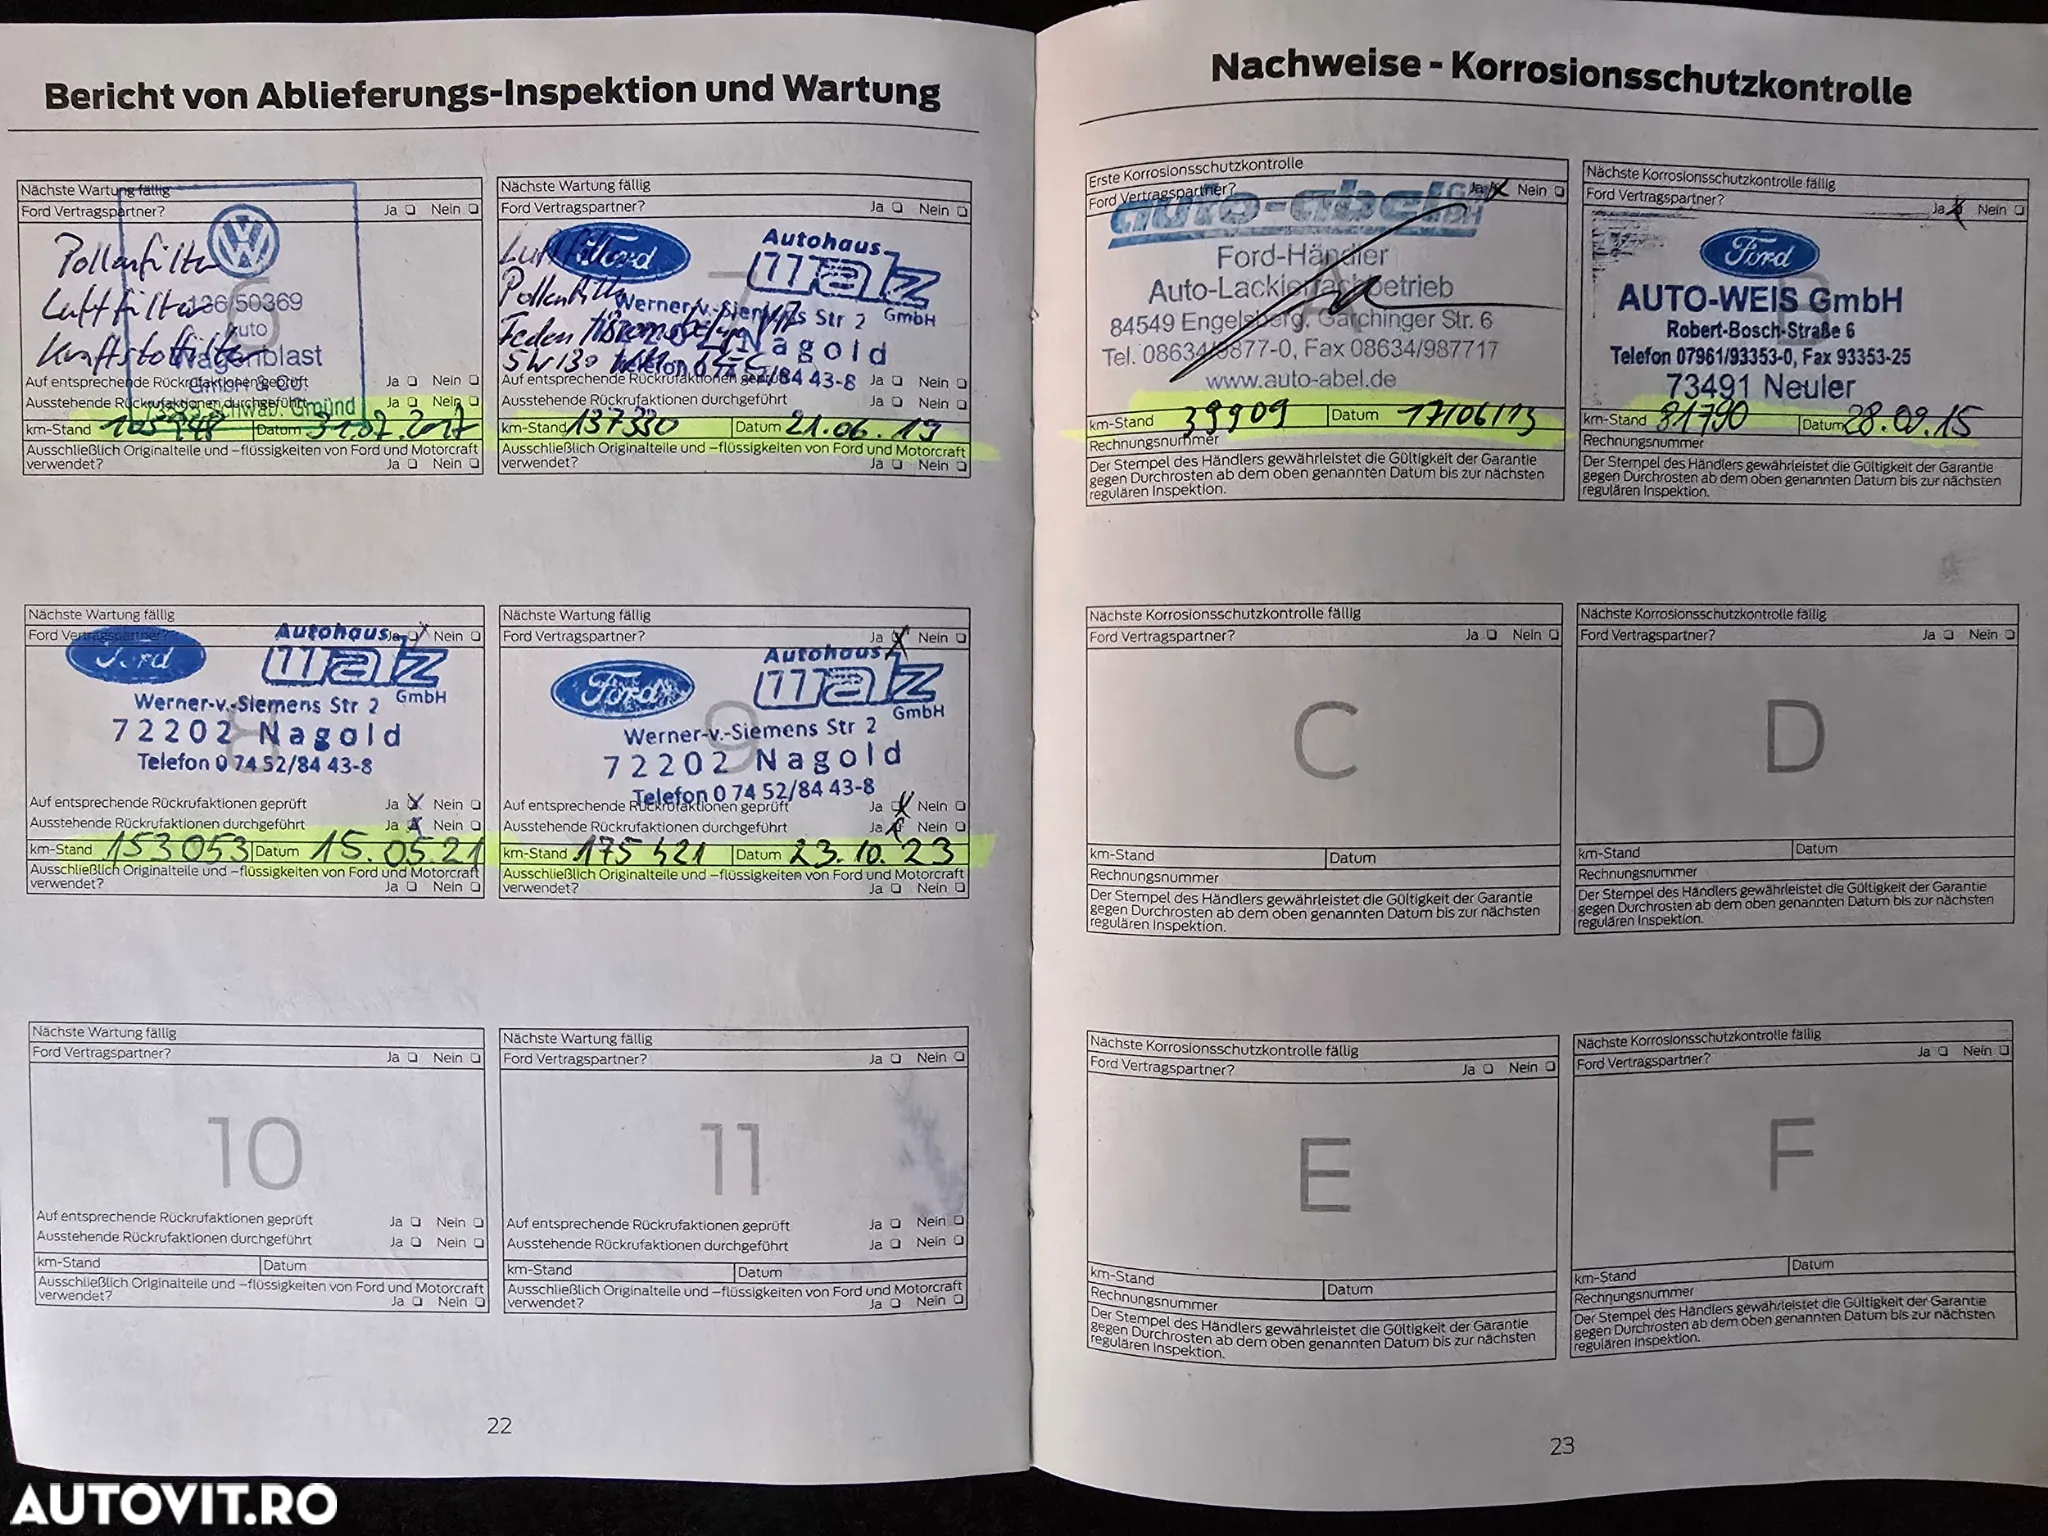 Bericht von Ablieferungs-Inspektion und Wartung
Nächste Wartung fällig
Ford Vertragspartner? Ja Nein
Pollenfilter
Luftfilter 136/50369
Auto
Kraftstoffilter Wagenblast
GmbH & Co.
Auf entsprechende Rückrufaktionen geprüft Ja Nein
Ausstehende Rückrufaktionen durchgeführt Ja Nein
Schwäb. Gmünd
km-Stand Datum 31.07.2017
Ausschließlich Originalteile und –flüssigkeiten von Ford und Motorcraft
verwendet? Ja Nein
Nächste Wartung fällig
Ford Vertragspartner? Ja Nein
Luftfilter Ford Autohaus
Walz
Pollenfilter GmbH
Werner-v.-Siemens Str 2
Nagold
5W30
Telefon 0 74 52/84 43-8
Auf entsprechende Rückrufaktionen geprüft Ja Nein
Ausstehende Rückrufaktionen durchgeführt Ja Nein
km-Stand 137330 Datum 21.06.19
Ausschließlich Originalteile und –flüssigkeiten von Ford und Motorcraft
verwendet? Ja Nein
Nächste Wartung fällig
Ford Vertragspartner? Ja Nein
Ford Autohaus
Walz
GmbH
Werner-v.-Siemens Str 2
72202 Nagold
8
Telefon 0 74 52/84 43-8
Auf entsprechende Rückrufaktionen geprüft Ja X Nein
Ausstehende Rückrufaktionen durchgeführt Ja X Nein
km-Stand 153053 Datum 15.05.21
Ausschließlich Originalteile und –flüssigkeiten von Ford und Motorcraft
verwendet? Ja Nein
Nächste Wartung fällig
Ford Vertragspartner? Ja X Nein
Ford Autohaus
Walz
GmbH
9
Werner-v.-Siemens Str 2
72202 Nagold
Telefon 0 74 52/84 43-8
Auf entsprechende Rückrufaktionen geprüft Ja X Nein
Ausstehende Rückrufaktionen durchgeführt Ja X Nein
km-Stand 175421 Datum 23.10.23
Ausschließlich Originalteile und –flüssigkeiten von Ford und Motorcraft
verwendet? Ja Nein
Nächste Wartung fällig
Ford Vertragspartner? Ja Nein
10
Auf entsprechende Rückrufaktionen geprüft Ja Nein
Ausstehende Rückrufaktionen durchgeführt Ja Nein
km-Stand Datum
Ausschließlich Originalteile und –flüssigkeiten von Ford und Motorcraft
verwendet? Ja Nein
Nächste Wartung fällig
Ford Vertragspartner? Ja Nein
11
Auf entsprechende Rückrufaktionen geprüft Ja Nein
Ausstehende Rückrufaktionen durchgeführt Ja Nein
km-Stand Datum
Ausschließlich Originalteile und –flüssigkeiten von Ford und Motorcraft
verwendet? Ja Nein
22
Nachweise - Korrosionsschutzkontrolle
Erste Korrosionsschutzkontrolle
Ford Vertragspartner? Ja X Nein
auto-abel GmbH
Ford-Händler
Auto-Lackierfachbetrieb
84549 Engelsberg, Garchinger Str. 6
Tel. 08634/9877-0, Fax 08634/987717
www.auto-abel.de
km-Stand 39909 Datum 17/06/13
Rechnungsnummer
Der Stempel des Händlers gewährleistet die Gültigkeit der Garantie
gegen Durchrosten ab dem oben genannten Datum bis zur nächsten
regulären Inspektion.
Nächste Korrosionsschutzkontrolle fällig
Ford Vertragspartner? Ja X Nein
Ford
B
AUTO-WEIS GmbH
Robert-Bosch-Straße 6
Telefon 07961/93353-0, Fax 93353-25
73491 Neuler
km-Stand 81790 Datum 28.09.15
Rechnungsnummer
Der Stempel des Händlers gewährleistet die Gültigkeit der Garantie
gegen Durchrosten ab dem oben genannten Datum bis zur nächsten
regulären Inspektion.
Nächste Korrosionsschutzkontrolle fällig
Ford Vertragspartner? Ja Nein
C
km-Stand Datum
Rechnungsnummer
Der Stempel des Händlers gewährleistet die Gültigkeit der Garantie
gegen Durchrosten ab dem oben genannten Datum bis zur nächsten
regulären Inspektion.
Nächste Korrosionsschutzkontrolle fällig
Ford Vertragspartner? Ja Nein
D
km-Stand Datum
Rechnungsnummer
Der Stempel des Händlers gewährleistet die Gültigkeit der Garantie
gegen Durchrosten ab dem oben genannten Datum bis zur nächsten
regulären Inspektion.
Nächste Korrosionsschutzkontrolle fällig
Ford Vertragspartner? Ja Nein
E
km-Stand Datum
Rechnungsnummer
Der Stempel des Händlers gewährleistet die Gültigkeit der Garantie
gegen Durchrosten ab dem oben genannten Datum bis zur nächsten
regulären Inspektion.
Nächste Korrosionsschutzkontrolle fällig
Ford Vertragspartner? Ja Nein
F
km-Stand Datum
Rechnungsnummer
Der Stempel des Händlers gewährleistet die Gültigkeit der Garantie
gegen Durchrosten ab dem oben genannten Datum bis zur nächsten
regulären Inspektion.
23
AUTOVIT.RO